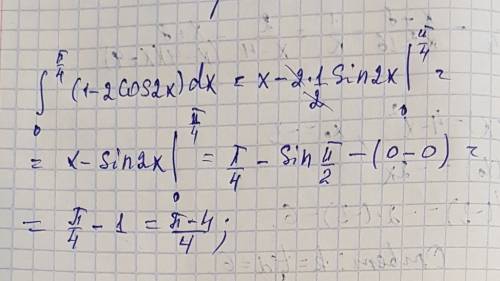 ∫₀^(π/4) (1-2cos2x)dx = x - 2·1/2 sin2x |₀^(π/4) =
= x - sin2x |₀^(π/4) = π/4 - sin π/2 - (0-0) =
= π/4 - 1 = (π-4)/4;